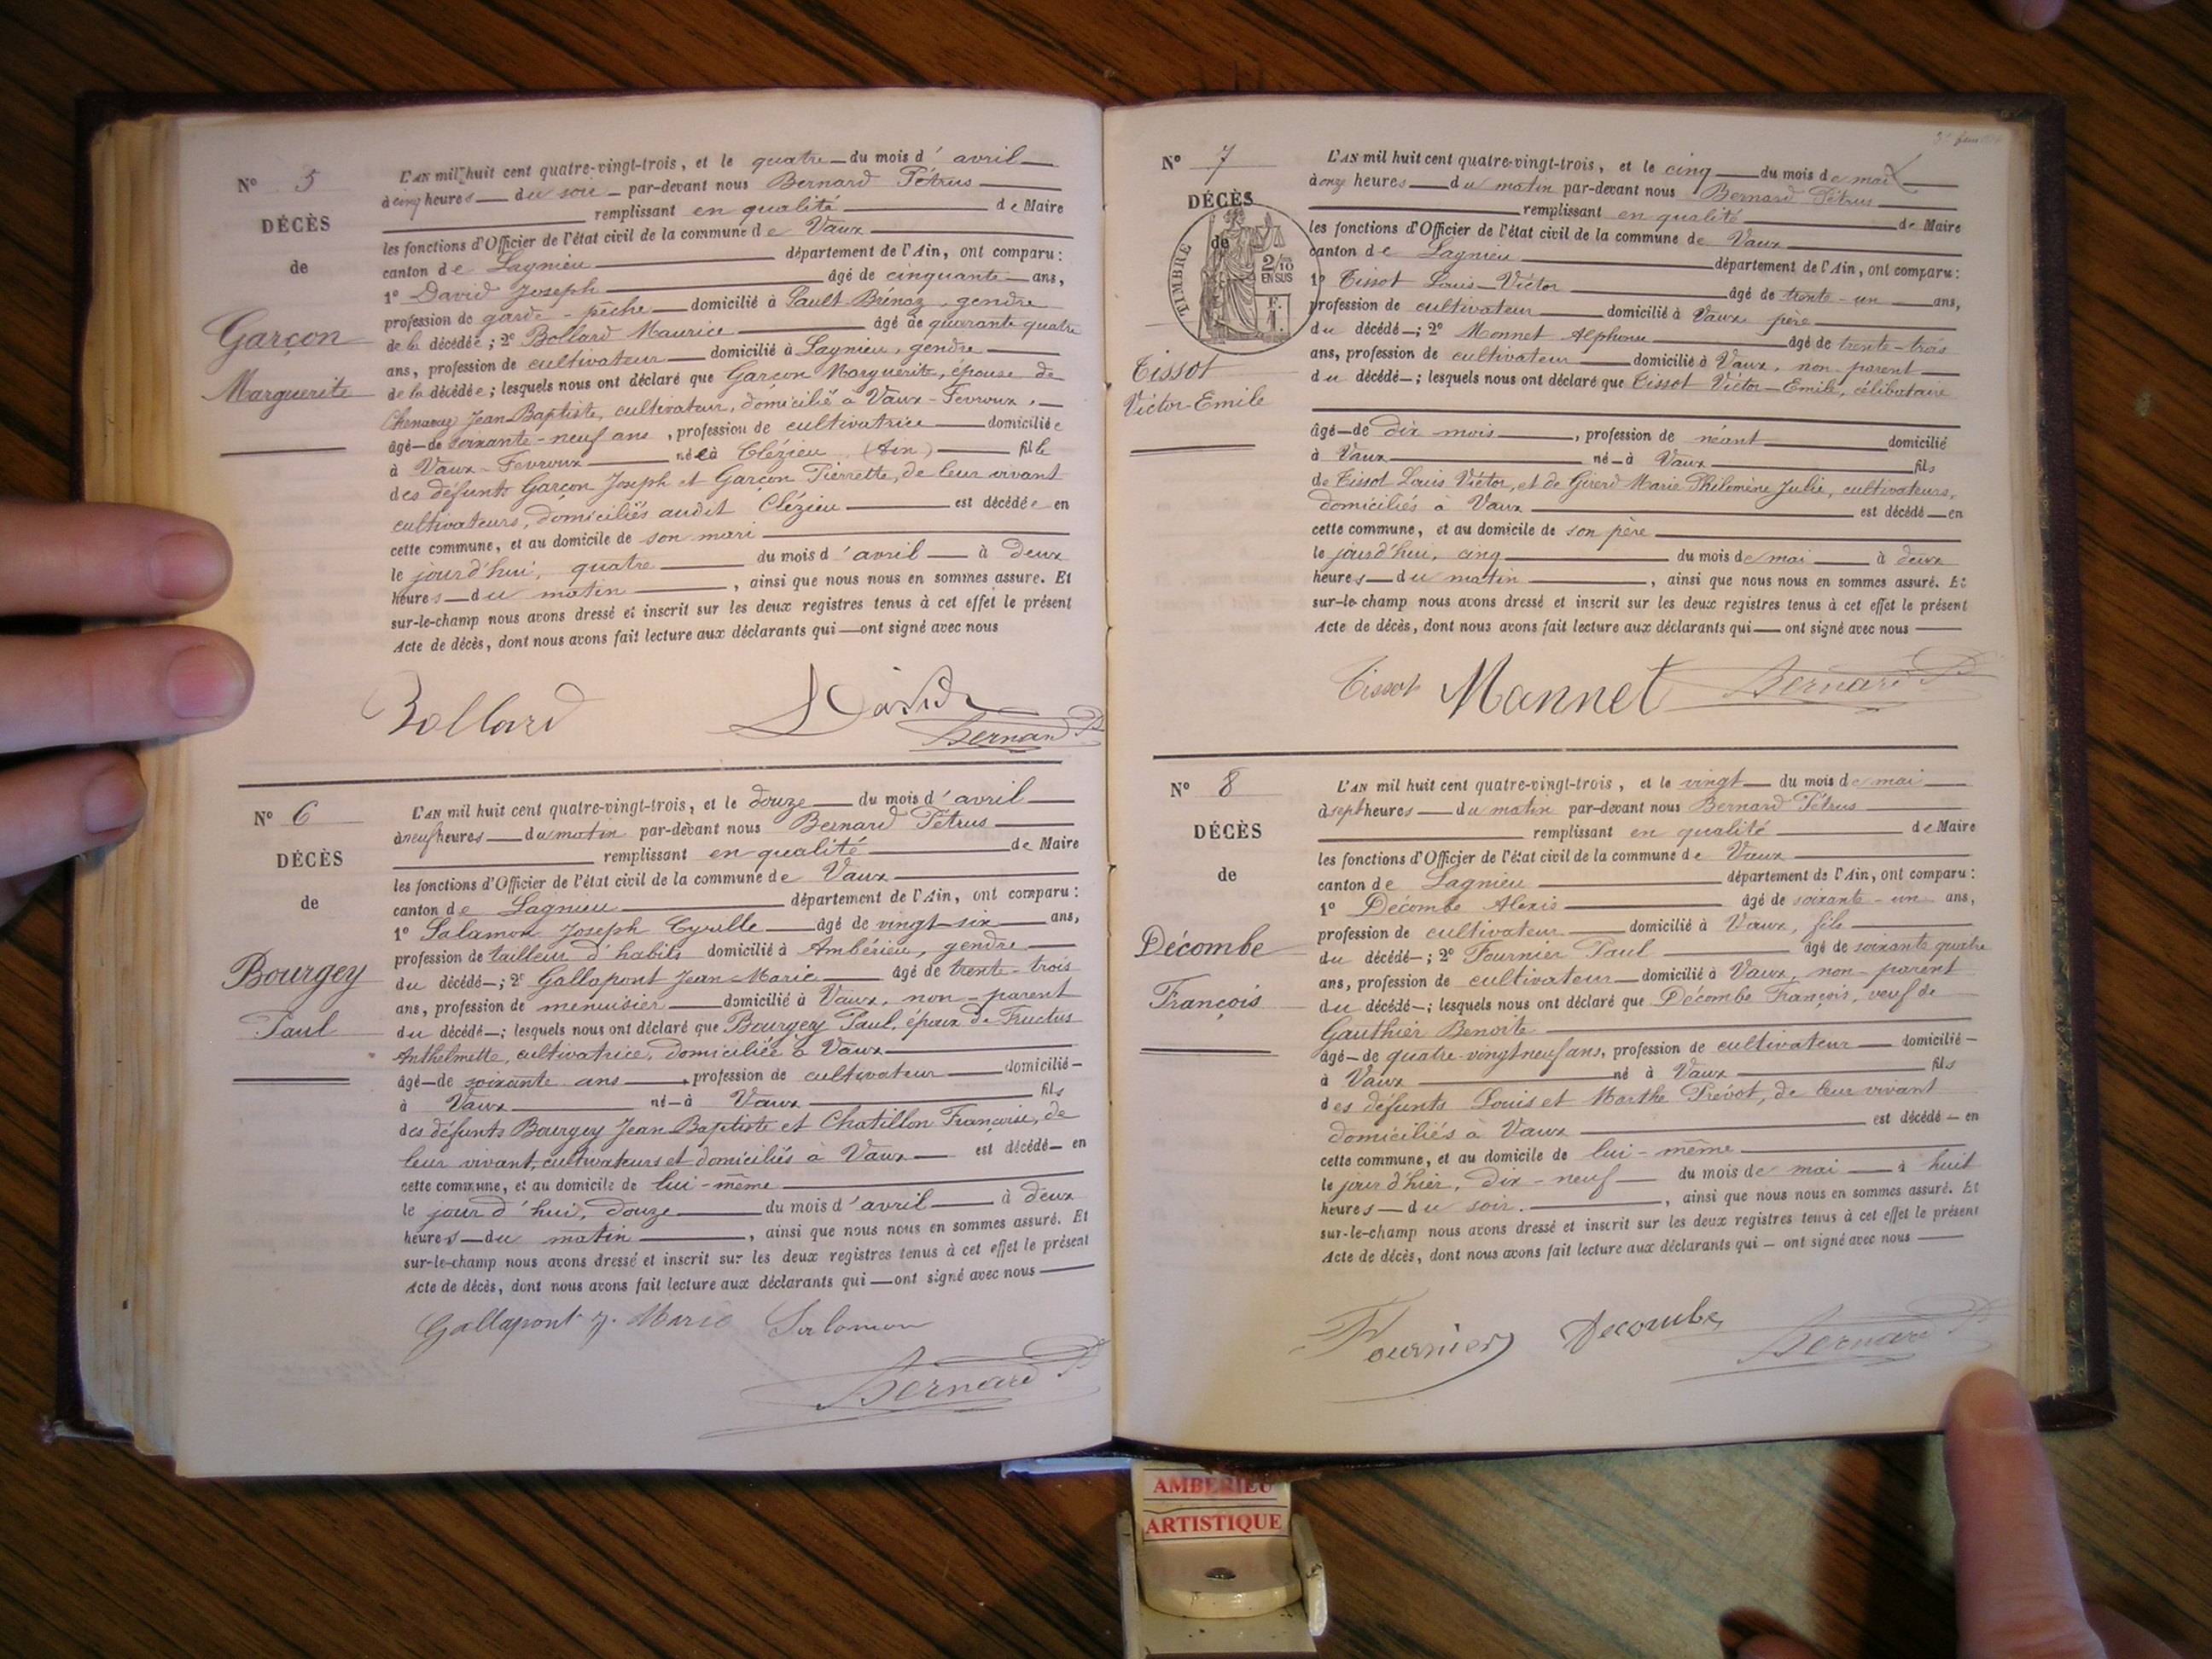 N° 5
DÉCÈS
de
Garçon
Marguerite
L'AN mil huit cent quatre-vingt-trois, et le quatre du mois d'avril
à cinq heures du soir par-devant nous Bernard Pétrus
remplissant en qualité de Maire
les fonctions d'Officier de l'état civil de la commune de Vaux
canton de Lagnieu département de l'Ain, ont comparu :
1° David Joseph âgé de cinquante ans,
profession de garde-pêche domicilié à Sault-Brénaz, gendre
de la décédée ; 2° Bollard Maurice âgé de quarante quatre
ans, profession de cultivateur domicilié à Lagnieu, gendre
de la décédée ; lesquels nous ont déclaré que Garçon Marguerite, épouse de
Chenavaz Jean-Baptiste, cultivateur, domicilié à Vaux-Fevroux,
âgé de soixante-neuf ans, profession de cultivatrice domiciliée
à Vaux-Fevroux née à Clézieu (Ain) fille
des défunts Garçon Joseph et Garçon Pierrette, de leur vivant
cultivateurs, domiciliés audit Clézieu est décédée en
cette commune, et au domicile de son mari
le jourd'hui, quatre du mois d'avril à deux
heures du matin, ainsi que nous nous en sommes assuré. Et
sur-le-champ nous avons dressé et inscrit sur les deux registres tenus à cet effet le présent
Acte de décès, dont nous avons fait lecture aux déclarants qui ont signé avec nous
Bollard David
Bernard P
N° 6
DÉCÈS
de
Bourgey
Paul
L'AN mil huit cent quatre-vingt-trois, et le douze du mois d'avril
à neuf heures du matin par-devant nous Bernard Pétrus
remplissant en qualité de Maire
les fonctions d'Officier de l'état civil de la commune de Vaux
canton de Lagnieu département de l'Ain, ont comparu :
1° Salamon Joseph Cyrille âgé de vingt-six ans,
profession de tailleur d'habits domicilié à Ambérieu, gendre
du décédé ; 2° Gallapont Jean-Marie âgé de trente-trois
ans, profession de menuisier domicilié à Vaux, non-parent
du décédé ; lesquels nous ont déclaré que Bourgey Paul, époux de Fructus
Anthelmette, cultivatrice, domiciliée à Vaux
âgé de soixante ans, profession de cultivateur domicilié
à Vaux né à Vaux fils
des défunts Bourgey Jean-Baptiste et Chatillon Françoise, de
leur vivant, cultivateurs et domiciliés à Vaux est décédé en
cette commune, et au domicile de lui-même
le jour d'hui, douze du mois d'avril à deux
heures du matin, ainsi que nous nous en sommes assuré. Et
sur-le-champ nous avons dressé et inscrit sur les deux registres tenus à cet effet le présent
Acte de décès, dont nous avons fait lecture aux déclarants qui ont signé avec nous
Gallapont J. Marie Salomon
Bernard P
N° 7
DÉCÈS
de
TIMBRE
2/10
EN SUS
Tissot
Victor-Emile
L'AN mil huit cent quatre-vingt-trois, et le cinq du mois de mai
à onze heures du matin par-devant nous Bernard Pétrus
remplissant en qualité de Maire
les fonctions d'Officier de l'état civil de la commune de Vaux
canton de Lagnieu département de l'Ain, ont comparu :
1° Tissot Louis-Victor âgé de trente-un ans,
profession de cultivateur domicilié à Vaux père
du décédé ; 2° Monnet Alphonse âgé de trente-trois
ans, profession de cultivateur domicilié à Vaux, non parent
du décédé ; lesquels nous ont déclaré que Tissot Victor-Emile, célibataire
âgé de dix mois, profession de néant domicilié
à Vaux né à Vaux fils
de Tissot Louis Victor, et de Girerd Marie Philomène Julie, cultivateurs,
domiciliés à Vaux est décédé en
cette commune, et au domicile de son père
le jourd'hui, cinq du mois de mai à deux
heures du matin, ainsi que nous nous en sommes assuré. Et
sur-le-champ nous avons dressé et inscrit sur les deux registres tenus à cet effet le présent
Acte de décès, dont nous avons fait lecture aux déclarants qui ont signé avec nous
Tissot Mannet Bernard P
N° 8
DÉCÈS
de
Décombe
François
L'AN mil huit cent quatre-vingt-trois, et le vingt du mois de mai
à sept heures du matin par-devant nous Bernard Pétrus
remplissant en qualité de Maire
les fonctions d'Officier de l'état civil de la commune de Vaux
canton de Lagnieu département de l'Ain, ont comparu :
1° Décombe Alexis âgé de soixante-un ans,
profession de cultivateur domicilié à Vaux, fils
du décédé ; 2° Fournier Paul âgé de soixante quatre
ans, profession de cultivateur domicilié à Vaux, non-parent
du décédé ; lesquels nous ont déclaré que Décombe François, veuf de
Gauthier Benoîte
âgé de quatre-vingt neuf ans, profession de cultivateur domicilié
à Vaux né à Vaux fils
des défunts Louis et Marthe Prévot, de leur vivant
domiciliés à Vaux est décédé en
cette commune, et au domicile de lui-même
le jour d'hier, dix-neuf du mois de mai à huit
heures du soir, ainsi que nous nous en sommes assuré. Et
sur-le-champ nous avons dressé et inscrit sur les deux registres tenus à cet effet le présent
Acte de décès, dont nous avons fait lecture aux déclarants qui ont signé avec nous
Fournier Decombe Bernard P
AMBERIEU
ARTISTIQUE